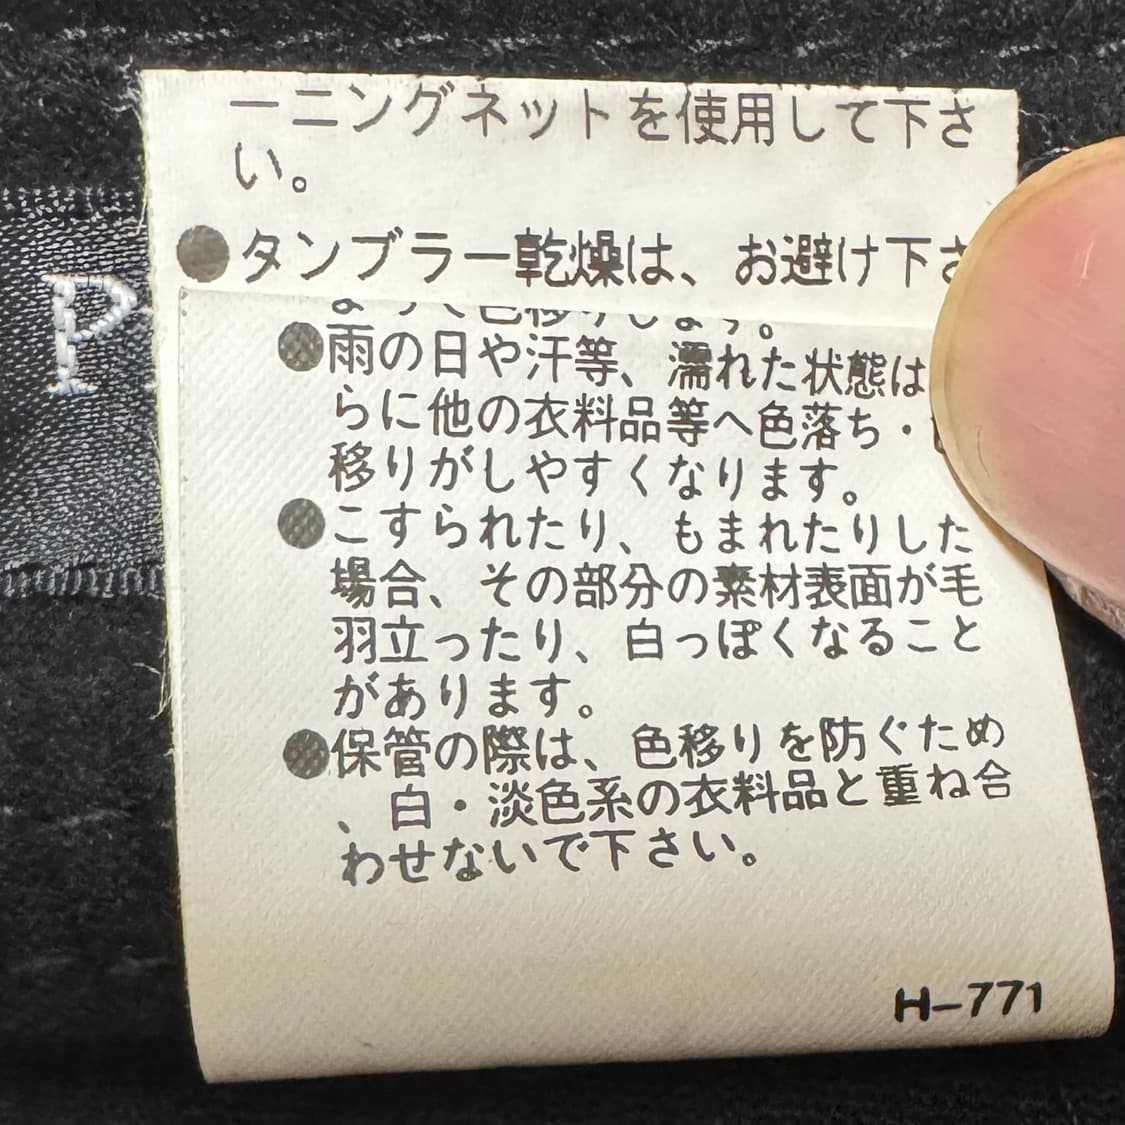 ーニングネットを使用して下さ
い。
●タンブラー乾燥は、お避け下さ
P
●雨の日や汗等、濡れた状態は
らに他の衣料品等へ色落ち・
移りがしやすくなります。
●こすられたり、もまれたりした
場合、その部分の素材表面が毛
羽立ったり、白っぽくなること
があります。
●保管の際は、色移りを防ぐため
、白・淡色系の衣料品と重ね合
わせないで下さい。
H-771